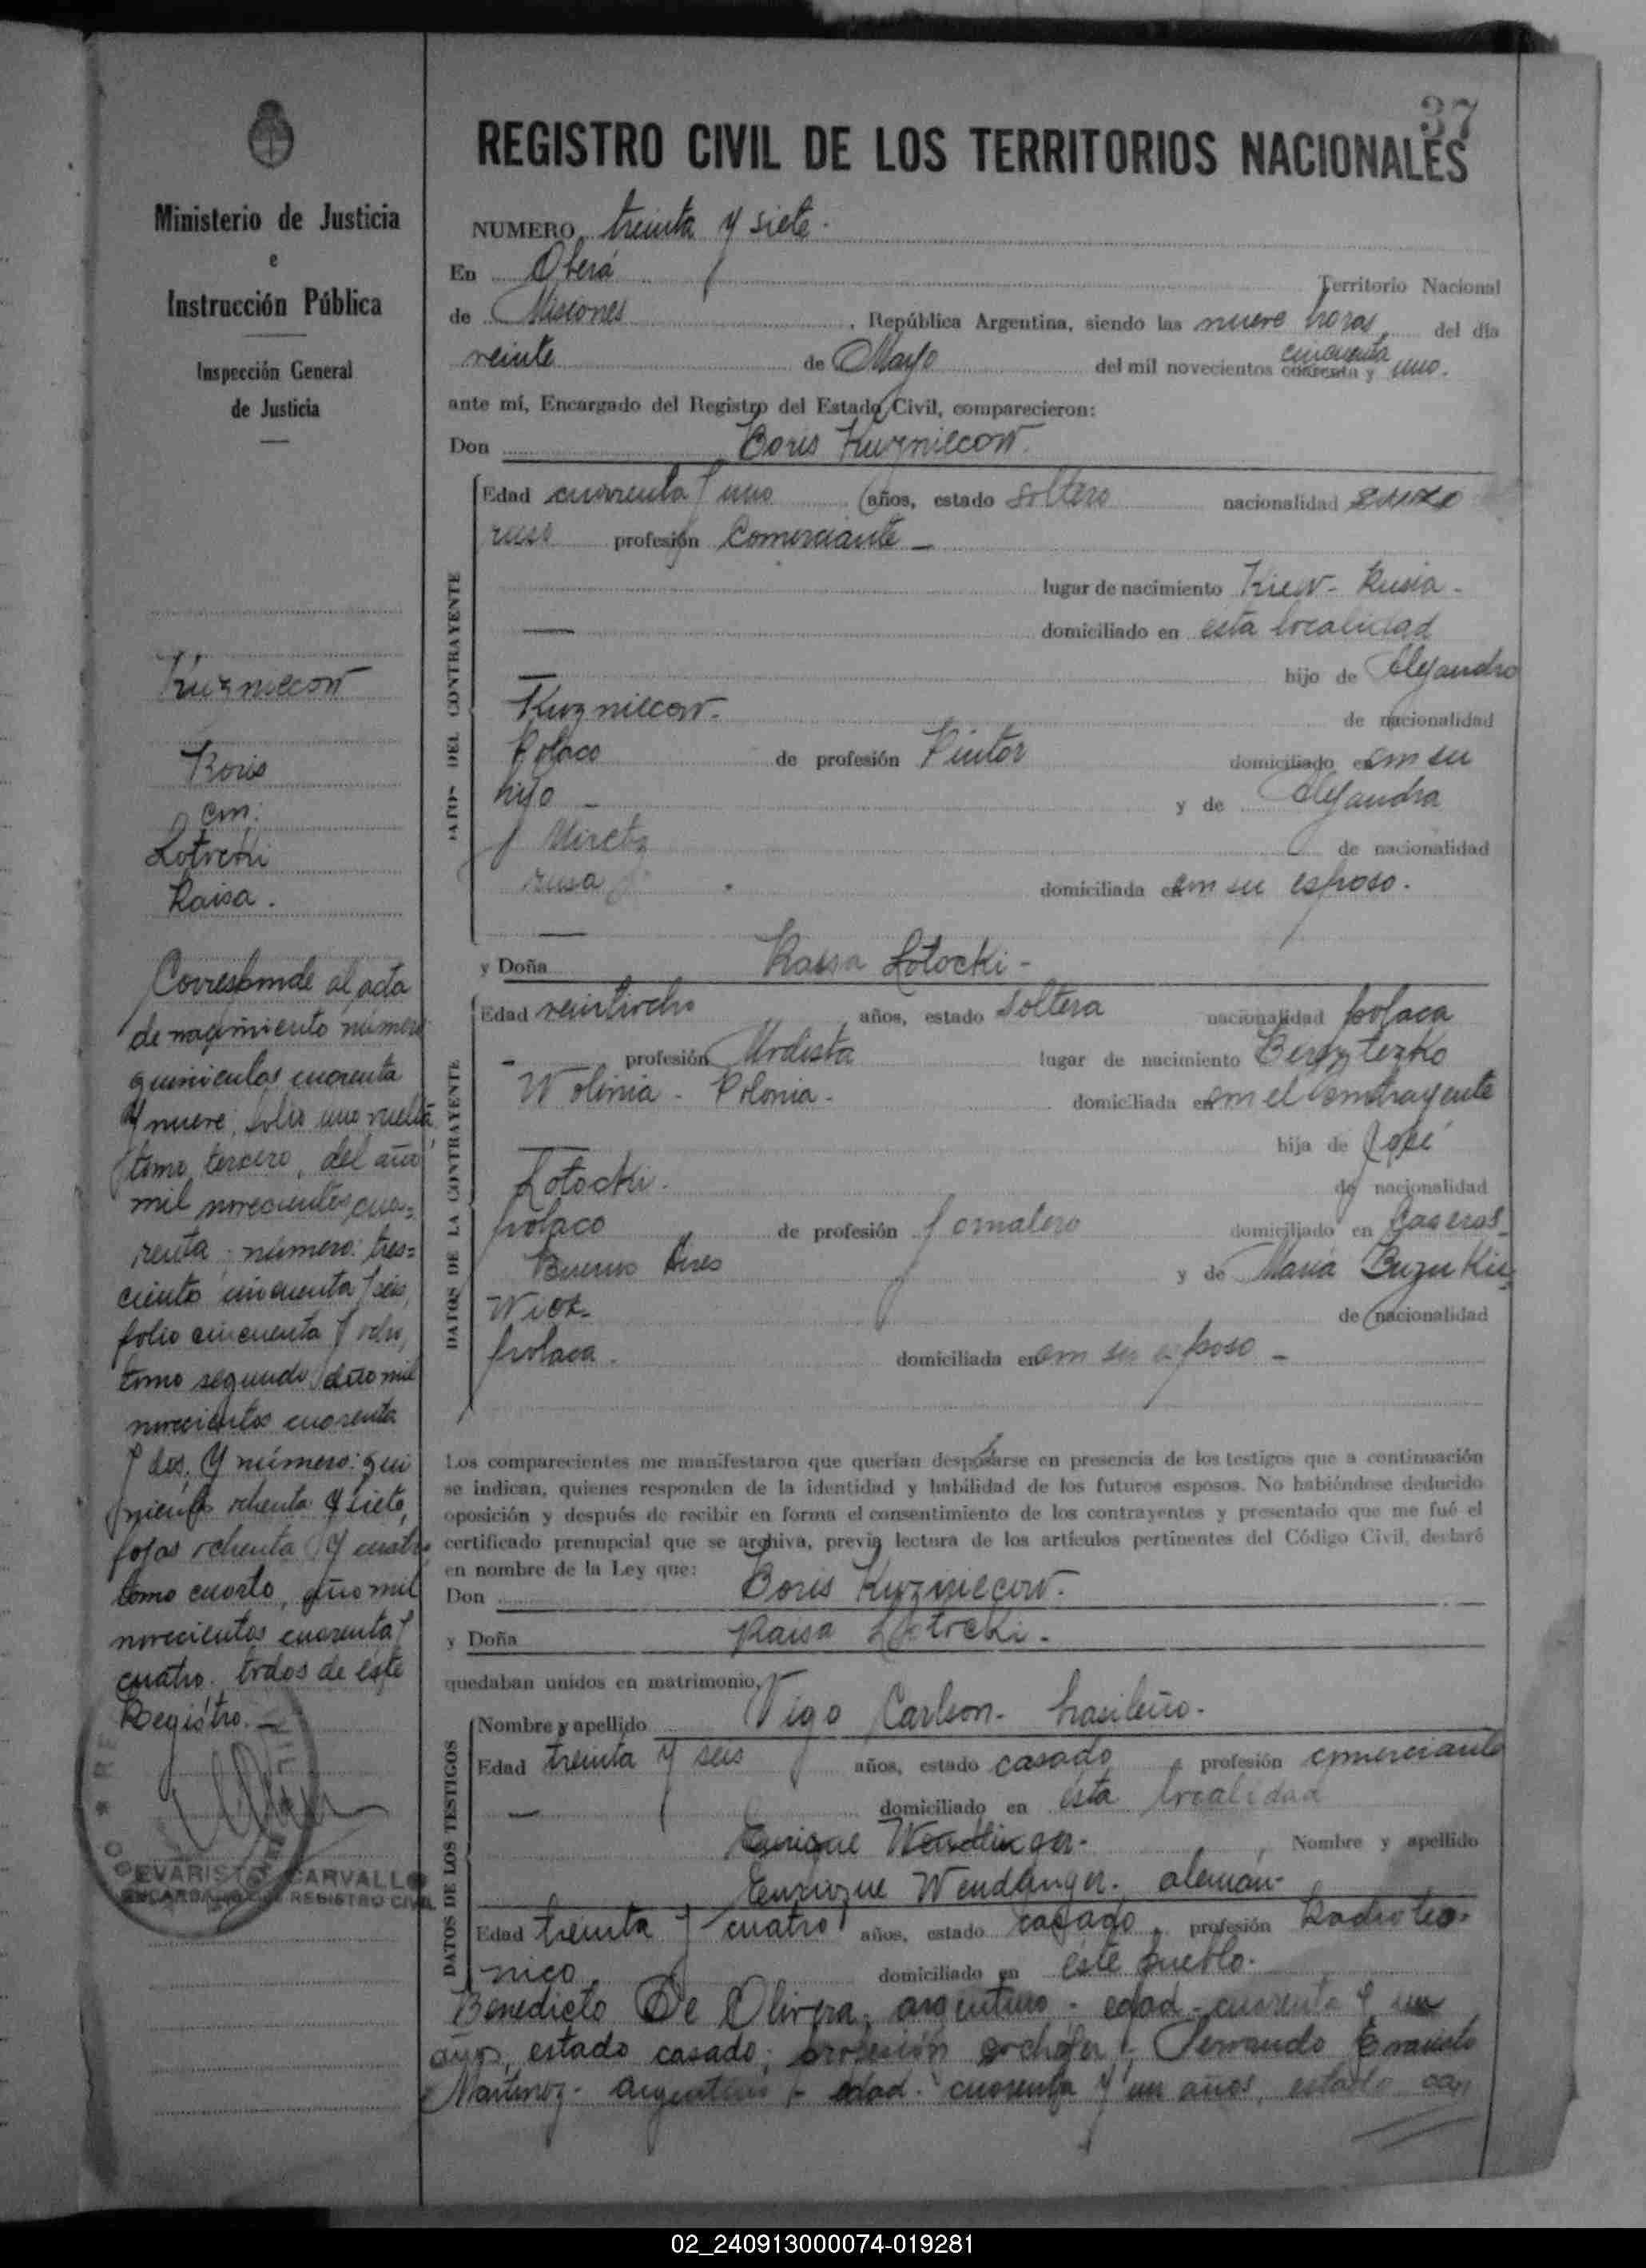 37
REGISTRO CIVIL DE LOS TERRITORIOS NACIONALES
Ministerio de Justicia
e
Instrucción Pública
Inspección General
de Justicia
Kuzniecow
Boris
con:
Lotocki
Raisa.
Corresponde al acta
de nacimiento número
quinientos cuarenta
y nueve, folio uno vuelta,
tomo tercero, del año
mil novecientos cua=
renta; número: tres=
cientos cincuenta y seis,
folio cincuenta y ocho,
tomo segundo año mil
novecientos cuarenta
y dos. Y número: qui
nientos ochenta y siete,
fojas ochenta y cuatro
tomo cuarto, año mil
novecientos cuarenta y
cuatro. todos de este
Registro.—
EVARISTO CARVALLO
ENCARGADO DEL REGISTRO CIVIL
NUMERO treinta y siete.
En Oberá Territorio Nacional
de Misiones, República Argentina, siendo las nueve horas, del día
veinte de Mayo del mil novecientos cuarenta cincuenta y uno.
ante mí, Encargado del Registro del Estado Civil, comparecieron:
Don Boris Kuzniecow.
DATOS DEL CONTRAYENTE
Edad cuarenta y uno años, estado soltero nacionalidad
ruso profesión Comerciante —
lugar de nacimiento Kiew - Rusia -
— domiciliado en esta localidad
— hijo de Alejandro
Kuzniecow. de nacionalidad
Polaco de profesión Pintor domiciliado en con su
hijo — y de Alejandra
de nacionalidad
rusa domiciliada en con su esposo.
y Doña Raisa Lotocki -
DATOS DE LA CONTRAYENTE
Edad veintiocho años, estado soltera nacionalidad polaca
- profesión Modista lugar de nacimiento Bereztezko
Wolinia - Polonia - domiciliada en con el contrayente
— hija de José
Lotocki. de nacionalidad
polaco de profesión Jornalero domiciliado en Caseros
Buenos Aires y de María Buzukie
Wicz- de nacionalidad
polaca. domiciliada en con su esposo —
Los comparecientes me manifestaron que querían desposarse en presencia de los testigos que a continuación
se indican, quienes responden de la identidad y habilidad de los futuros esposos. No habiéndose deducido
oposición y después de recibir en forma el consentimiento de los contrayentes y presentado que me fué el
certificado prenupcial que se archiva, previa lectura de los artículos pertinentes del Código Civil, declaré
en nombre de la Ley que:
Don Boris Kuzniecow.
y Doña Raisa Lotocki -
quedaban unidos en matrimonio.
DATOS DE LOS TESTIGOS
Nombre y apellido Vigo Carlson - brasileño -
Edad treinta y seis años, estado casado profesión comerciante
— domiciliado en esta localidad
Enrique Wendlinger - Nombre y apellido
Enrique Wendlinger - alemán -
Edad treinta y cuatro años, estado casado, profesión Radiotec-
nico domiciliado en este pueblo.
Benedicto De Olivera, argentino - edad - cuarenta y un
años, estado casado; profesión chofer y Fernando Evaristo
Martinez - argentino - edad - cuarenta y un años, estado cas
02_240913000074-019281